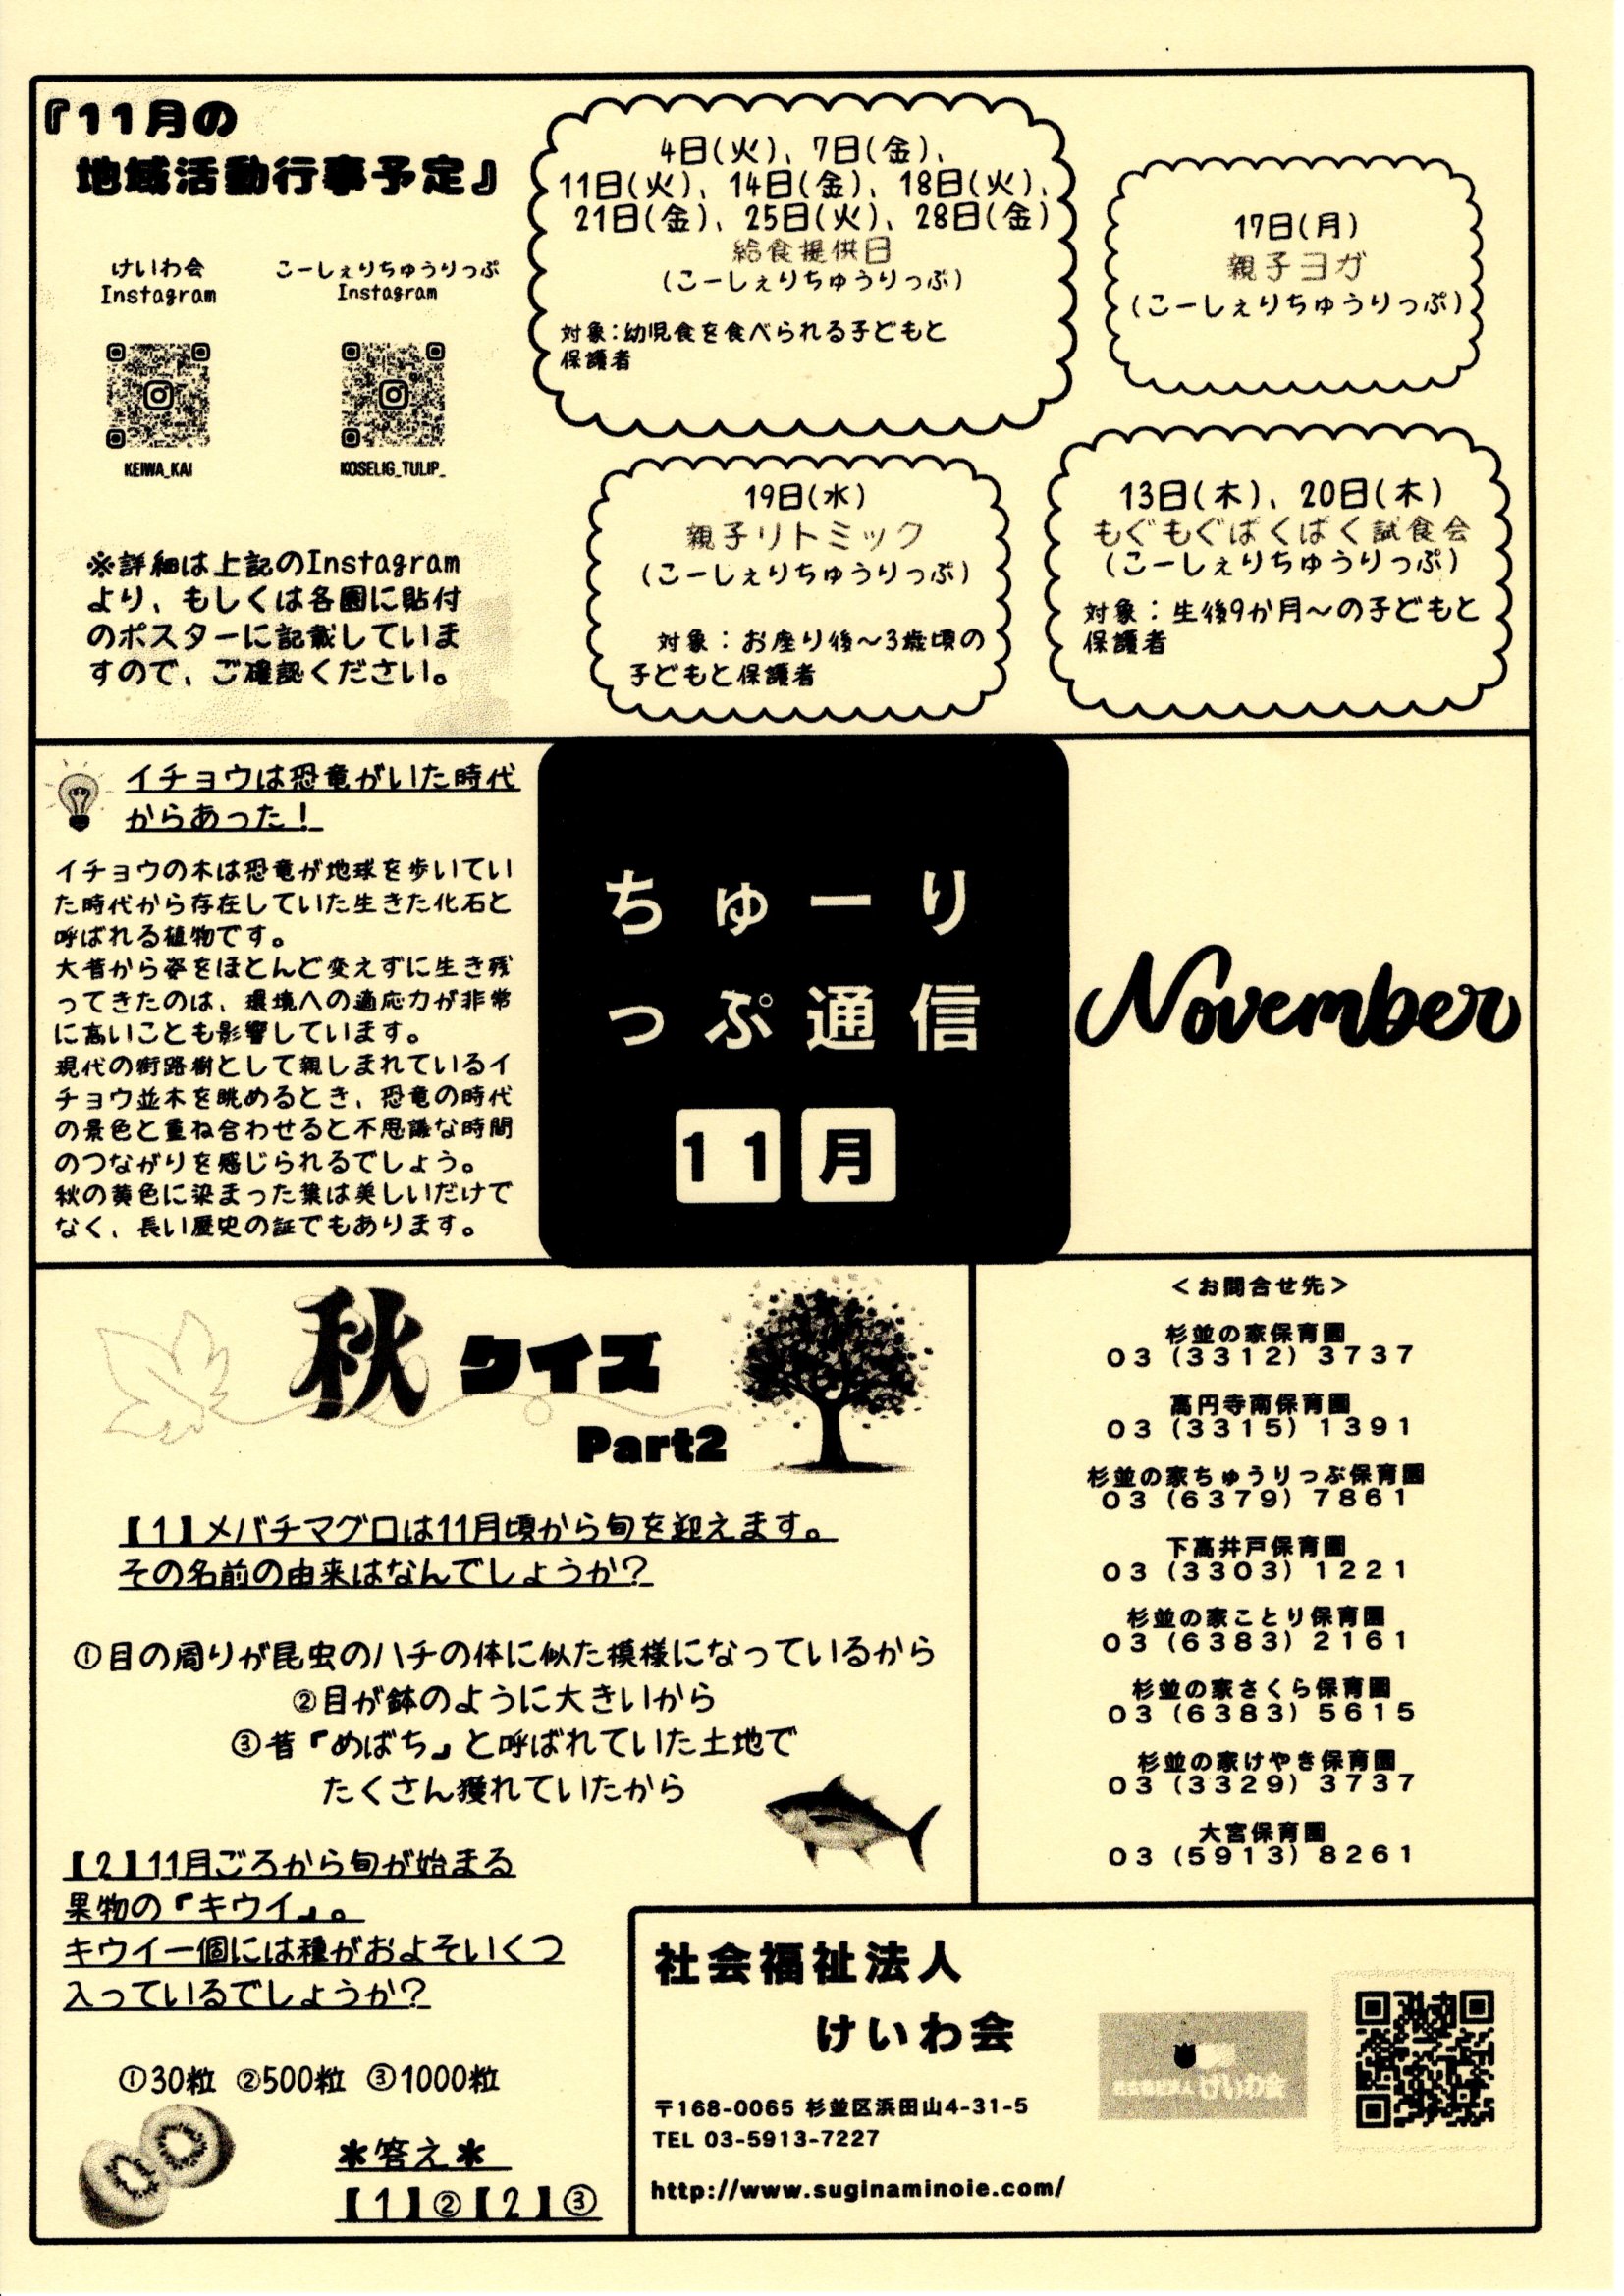 『11月の
地域活動行事予定』
けいわ会
Instagram
KEIWA_KAI
こーしぇりちゅうりっぷ
Instagram
KOSELIG_TULIP_
※詳細は上記のInstagram
より、もしくは各園に貼付
のポスターに記載していま
すので、ご確認ください。
4日(火)、7日(金)、
11日(火)、14日(金)、18日(火)、
21日(金)、25日(火)、28日(金)
給食提供日
(こーしぇりちゅうりっぷ)
対象:幼児食を食べられる子どもと
保護者
17日(月)
親子ヨガ
(こーしぇりちゅうりっぷ)
19日(水)
親子リトミック
(こーしぇりちゅうりっぷ)
対象：お座り後～3歳頃の
子どもと保護者
13日(木)、20日(木)
もぐもぐぱくぱく試食会
(こーしぇりちゅうりっぷ)
対象：生後9か月～の子どもと
保護者
イチョウは恐竜がいた時代
からあった！
イチョウの木は恐竜が地球を歩いてい
た時代から存在していた生きた化石と
呼ばれる植物です。
大昔から姿をほとんど変えずに生き残
ってきたのは、環境への適応力が非常
に高いことも影響しています。
現代の街路樹として親しまれているイ
チョウ並木を眺めるとき、恐竜の時代
の景色と重ね合わせると不思議な時間
のつながりを感じられるでしょう。
秋の黄色に染まった葉は美しいだけで
なく、長い歴史の証でもあります。
ちゅーり
っぷ通信
11月
November
秋クイズ
Part2
【1】メバチマグロは11月頃から旬を迎えます。
その名前の由来はなんでしょうか?
①目の周りが昆虫のハチの体に似た模様になっているから
②目が鉢のように大きいから
③昔『めばち』と呼ばれていた土地で
たくさん獲れていたから
【2】11月ごろから旬が始まる
果物の『キウイ』。
キウイ一個には種がおよそいくつ
入っているでしょうか?
①30粒 ②500粒 ③1000粒
＊答え＊
【1】②【2】③
＜お問合せ先＞
杉並の家保育園
03（3312）3737
高円寺南保育園
03（3315）1391
杉並の家ちゅうりっぷ保育園
03（6379）7861
下高井戸保育園
03（3303）1221
杉並の家ことり保育園
03（6383）2161
杉並の家さくら保育園
03（6383）5615
杉並の家けやき保育園
03（3329）3737
大宮保育園
03（5913）8261
社会福祉法人
けいわ会
〒168-0065 杉並区浜田山4-31-5
TEL 03-5913-7227
http://www.suginaminoie.com/
けいわ会